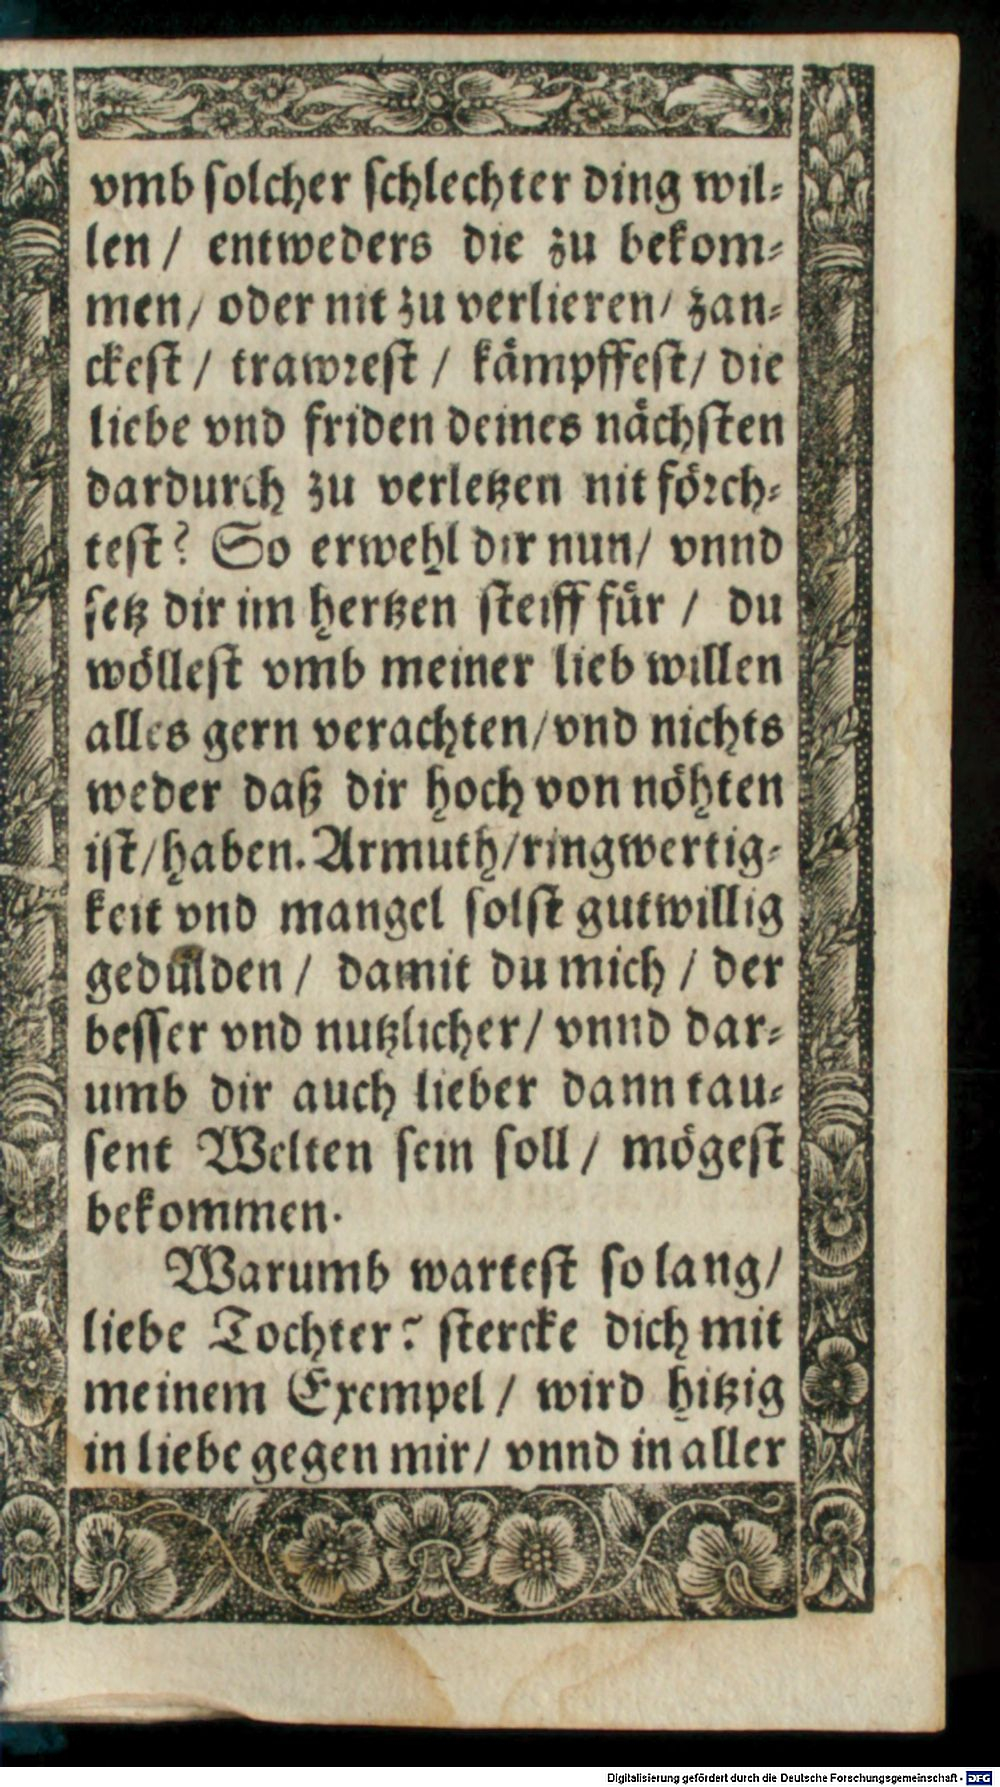 vmb solcher schlechter ding wil⸗
len / entweders die zu bekom⸗
men/ oder nit zu verlieren/ zan⸗
ckest / trawrest / kämpffest/ die
liebe vnd friden deines nächsten
dardurch zu verletzen nit förch⸗
test? So erwehl dir nun/ vnnd
setz dir im hertzen steiff für / du
wöllest vmb meiner lieb willen
alles gern verachten/vnd nichts
weder daß dir hoch von nöhten
ist/haben. Armuth/ringwertig⸗
keit vnd mangel solst gutwillig
gedulden / damit du mich / der
besser vnd nutzlicher/ vnnd dar⸗
umb dir auch lieber dann tau⸗
sent Welten sein soll / mögest
bekommen.
Warumb wartest so lang/
liebe Tochter? stercke dich mit
meinem Exempel / wird hitzig
in liebe gegen mir/ vnnd in aller
Digitalisierung gefördert durch die Deutsche Forschungsgemeinschaft - DFG